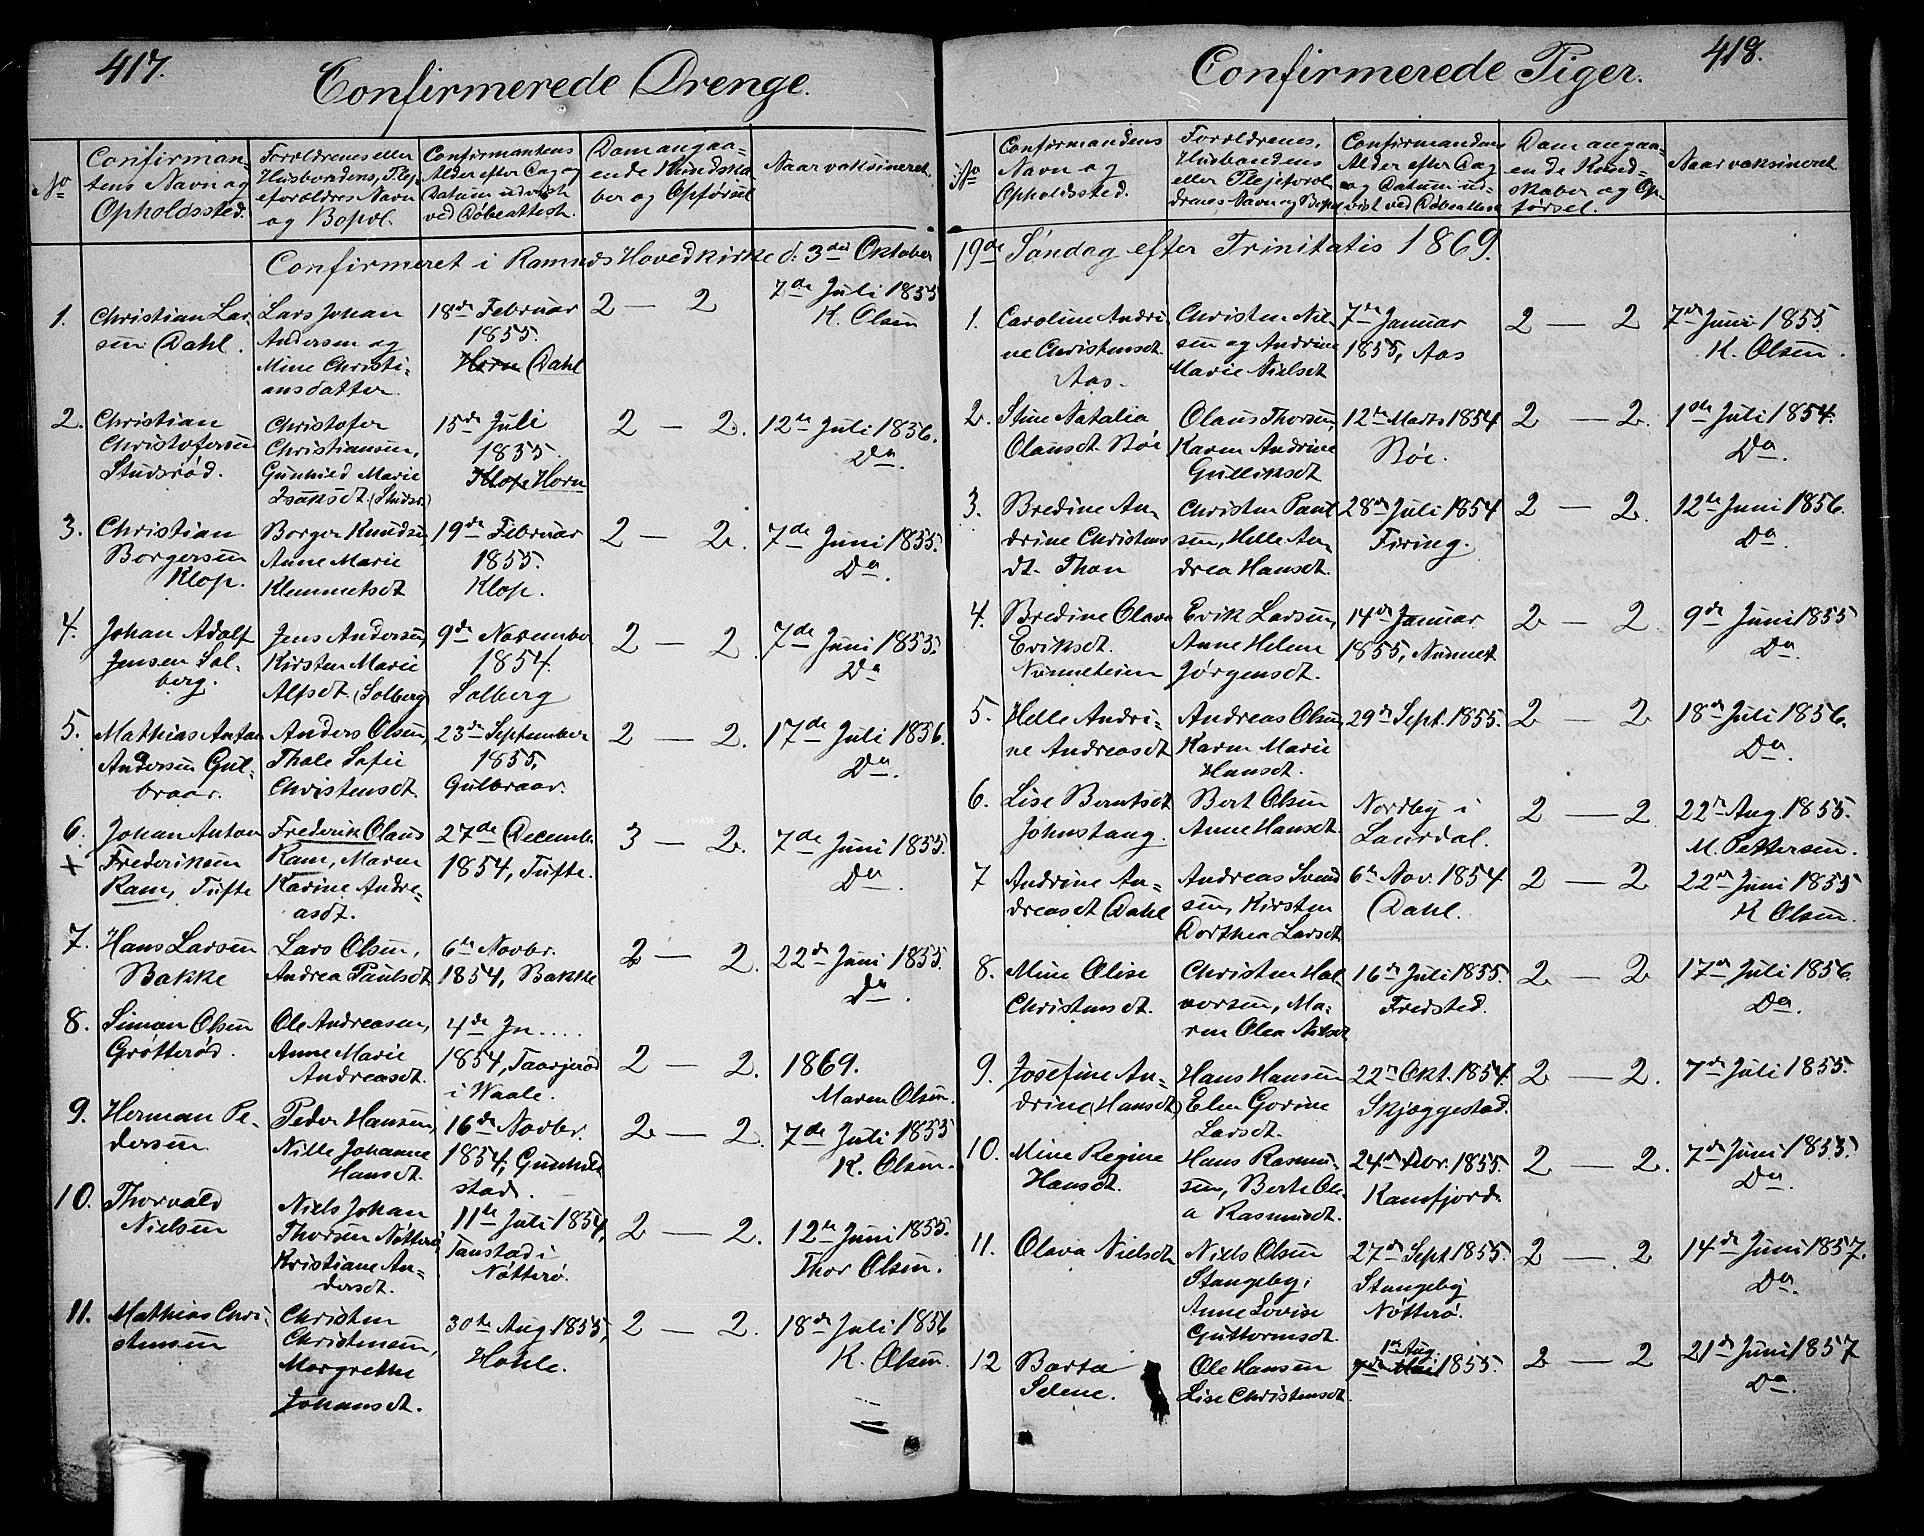 417.
Confirmerede Drenge.
No
Confirman-
tens Navn og
Opholdssted.
Forældrenes eller
Husbondens, Plej-
eforældres Navn
og Bopæl.
Confirmantens
Alder efter Dag og
Datum udvist
ved Døbeattest.
Dom angaa-
ende Kundska-
ber og Opførsel
Naar vaksineret.
Confirmeret i Ramnes Hovedkirke d: 3die Oktober
1.
Christian Lar-
sen Dahl.
Lars Johan
Andersen og
Mine Christi-
ansdatter
18de Februar
1855.
Horn Dahl
2 — 2
7de Juli 1855
K. Olsen
2.
Christian
Christofersen
Studsrød.
Christofer
Christiansen,
Gunhild Marie
Isaksdt. (Studsr)
15de Juli
1855.
Klop Horn
2 — 2.
12te Juli 1856.
Do.
3.
Christian
Borgersen
Klop.
Borger Knudsen
Anne Marie
Klemmetsdt
19de Februar
1855.
Klop.
2 — 2.
7de Juni 1855.
Do.
4.
Johan Adolf
Jensen Sol-
berg.
Jens Andersen,
Kirsten Marie
Alfsdt. (Solberg)
9de November
1854.
Solberg
2 — 2.
7de Juni 1855.
Do
5.
Mathias Anton
Andersen Gul-
braar.
Anders Olsen,
Thale Sofie
Christensdt.
23de September
1855,
Gulbraar.
2 — 2.
17de Juli 1856.
Do.
6.
+
Johan Anton
Frederiksen
Ram, Tufte
Frederik Olaus
Ram, Maren
Karine Andre-
asdt.
27de Decemb.
1854, Tufte.
3 — 2.
7de Juni 1855.
Do.
7.
Hans Larsen
Bakke
Lars Olsen,
Andrea Paulsdt
6te Novbr.
1854, Bakke
2 — 2.
22de Juni 1855.
Do.
8.
Simon Olsen
Grøtterød.
Ole Andreasen,
Anne Marie
Andreasdt.
4de Jn.....
1854, Taarjerød
i Waale.
2 — 2.
1869.
Maren Olsen.
9.
Herman Pe-
dersen
Peder Hansen,
Nille Johanne
Hansdt.
16de Novbr.
1854, Gunhild-
stad.
2 — 2.
7de Juli 1855
K. Olsen.
10.
Thorvald
Nielsen
Niels Johan
Thorsen Nøtterø,
Kristiane An-
dersdt.
11te Juli 1854,
Tanstad i
Nøtterø.
2 — 2.
12te Juni 1855.
Thor Olsen.
11.
Mathias Chri-
stensen
Christen
Christensen,
Margrethe
Johansdt.
30te Aug 1855,
Hohle.
2 — 2.
18de Juli 1856
K. Olsen.
418.
Confirmerede Piger.
No
Confirmandens
Navn og
Opholdssted.
Forældrenes,
Husbondens
eller Plejeforæl-
drenes Navn og Bopæl
Confirmandens
Alder efter Dag
og Datum ud-
vist ved Døbeattest
Dom angaa-
ende Kund-
skaber og Op-
førsel.
Naar vaksineret
19de Søndag efter Trinitatis 1869.
1.
Caroline Andri
ne Christensdt.
Aas.
Christen Nil
sen og Andrine
Marie Nielsdt
7de Januar
1855, Aas
2 — 2
7de Juni 1855
K. Olsen.
2.
Stine Natalia
Olausdt. Bøi
Olaus Thorsen,
Karen Andrine
Gulliksdt
12te Marts 1854
Bøi.
2 — 2.
1ste Juli 1854.
Do.
3.
Bredine An-
drine Christens
dt. Thon
Christen Paul
sen, Helle An-
drea Hansdt.
28de Juli 1854
Firing.
2 — 2.
12te Juni 1856.
Do.
4.
Bredine Olava
Eriksdt.
Nunneheien
Erik Larsen,
Anne Helene
Jørgensdt.
14de Januar
1855, Nunnet
2 — 2
9de Juni 1855
Do.
5.
Helle Andri-
ne Andreasdt
Andreas Olsen,
Karen Marie
Hansdt.
29de Sept. 1855.
2 — 2
18de Juli 1856.
Do.
6.
Lise Berntsdt
Johnstang.
Bert Olsen
Anne Hansdt.
Nordby i
Laurdal.
2 — 2.
22de Aug 1855.
M. Pettersen.
7
Andrine An-
dreasdt Dahl
Andreas Svend
sen, Kirsten
Dorthea Larsdt
6te Nov. 1854
Dahl.
2 — 2
22de Juni 1855
K Olsen.
8.
Mine Elise
Christensdt.
Christen Hal-
vorsen, Ma-
ren Olea Nilsdt
16de Juli 1855.
Fredsted.
2 — 2
17de Juli 1856
Do.
9.
Josefine An-
drine (Hansdt)
Hans Hansen
Elen Gorine
Larsdt.
22de Okt. 1854.
Skjæggestad.
2 — 2.
7de Juli 1855.
10.
Mine Regine
Hansdt.
Hans Rasmu-
sen, Berte Ole-
a Rasmusdt.
24de Febr. 1855.
Ramsfjord.
2 — 2.
7de Juni 1855.
Do.
11.
Olava Nielsdt
Niels Olsen
Stangeby,
Anne Lovise
Guttormsdt.
27de Sept 1855.
Stangeby
Nøtterø.
2 — 2
14de Juni 1857.
Do.
12
Barta
Selene.
Ole Hansen
Lise Christensdt.
1ste Aug.
7de Mai 1855.
2 — 2
21de Juni 1857
Do.